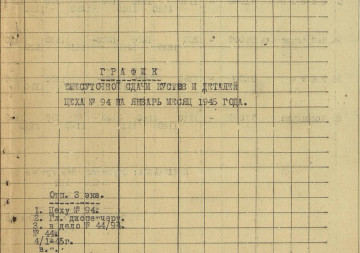 ГРАФИК
ЕЖЕСУТОЧНОЙ СДАЧИ КУСТЕВ И ДЕТАЛЕЙ
ЦЕХА № 94 НА ЯНВАРЬ МЕСЯЦ 1945 ГОДА.
Отп. 3 экз.
1. Цеху № 94.
2. Гл. диспетчеру.
3. в дело № 44/94.
№ 44.
4/1-45г.